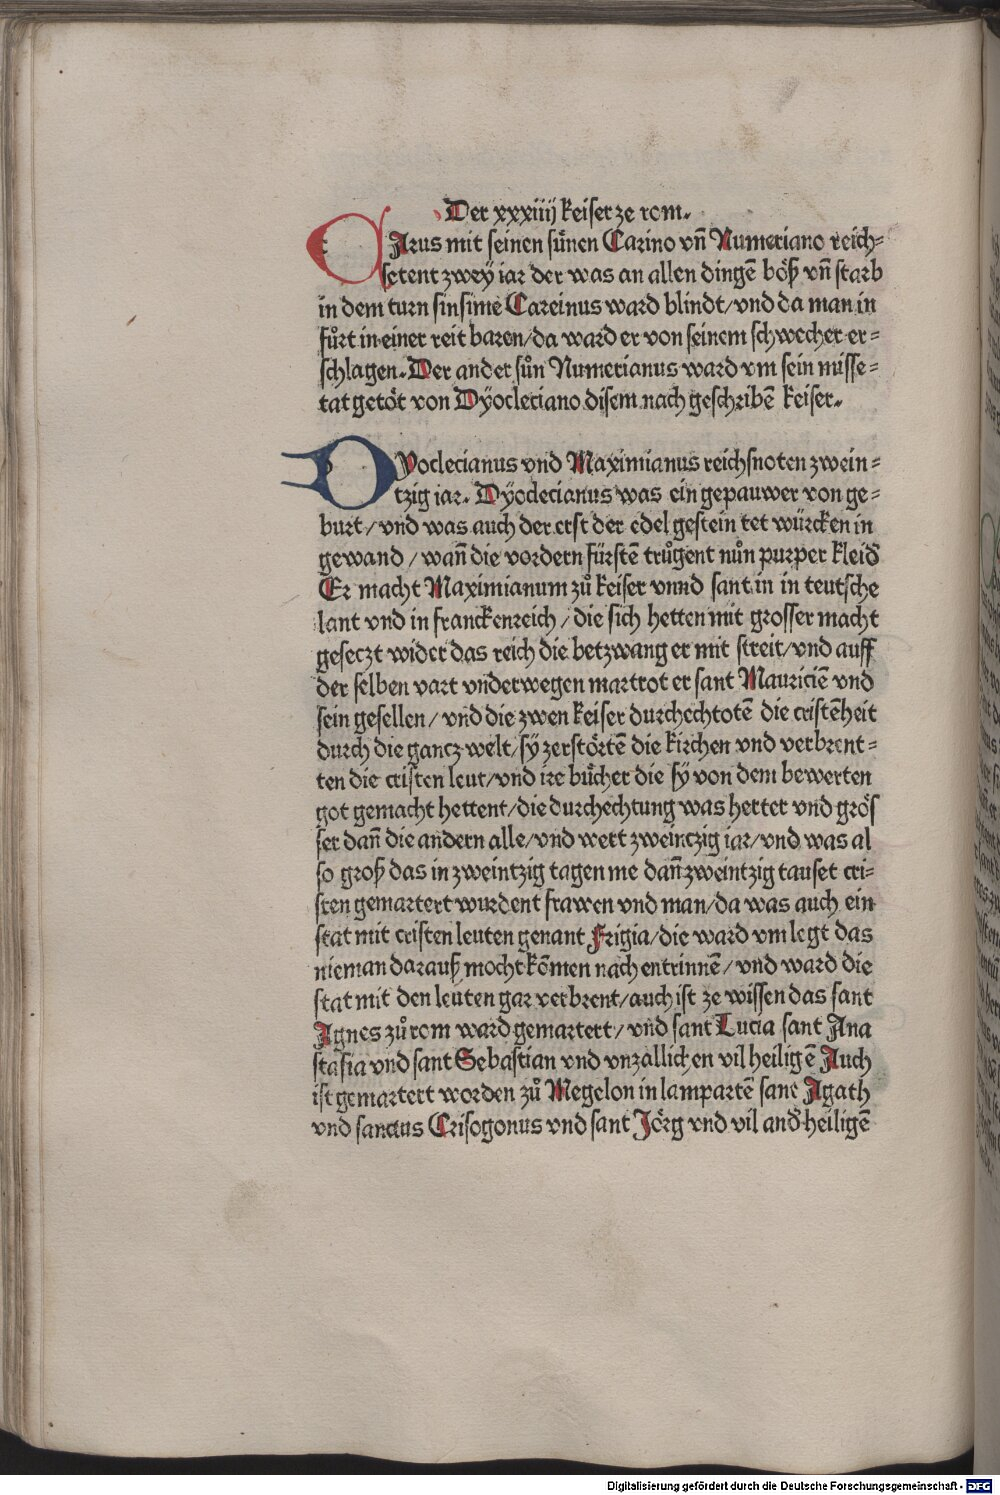 Der xxxiiij keiser ze rom.
CArus mit seinen sünen Carino vn̄ Numeriano reich⸗
setent zwey iar der was an allen dingē böß vn̄ starb
in dem turn sinsime Careinus ward blindt/vnd da man in
fůrt in einer reit baren/da ward er von seinem schwecher er⸗
schlagen. Der ander sůn Numerianus ward vm sein misse⸗
tat getöt von Dÿocleciano disem nach geschribē keiser.
DYoclecianus vnd Maximianus reichsnoten zwein⸗
tzig iar. Dÿoclecianus was ein gepauwer von ge⸗
burt/vnd was auch der erst der edel gestein tet würcken in
gewand/wan̄ die vordern fürstē trůgent nůn purper kleid
Er macht Maximianum zů keiser vnnd sant in in teutsche
lant vnd in franckenreich/die sich hetten mit grosser macht
geseczt wider das reich die betzwang er mit streit/vnd auff
der selben vart vnderwegen martrot er sant Mauriciē vnd
sein gesellen/vnd die zwen keiser durchechtotē die cristēheit
durch die gancz welt/sÿ zerstörtē die kirchen vnd verbrent⸗
ten die cristen leut/vnd ire bücher die sÿ von dem bewerten
got gemacht hettent/die durchechtung was herter vnd grös
ser dan̄ die andern alle/vnd wert zweintzig iar/vnd was al
so groß das in zweintzig tagen me dan̄ zweintzig tauset cri⸗
sten gemartert wurdent frawen vnd man/da was auch ein
stat mit cristen leuten genant Frigia/die ward vm legt das
nieman darauß mocht kōmen nach entrinnē/vnd ward die
stat mit den leuten gar verbrent/auch ist ze wissen das sant
Agnes zů rom ward gemartert/vnd sant Lucia sant Ana
stasia vnd sant Sebastian vnd vnzallichen vil heiligē Auch
ist gemartert worden zů Megelon in lampartē sant Agath
vnd sanctus Crisogonus vnd sant Jörg vnd vil and̄ heiligē
Digitalisierung gefördert durch die Deutsche Forschungsgemeinschaft - DFG